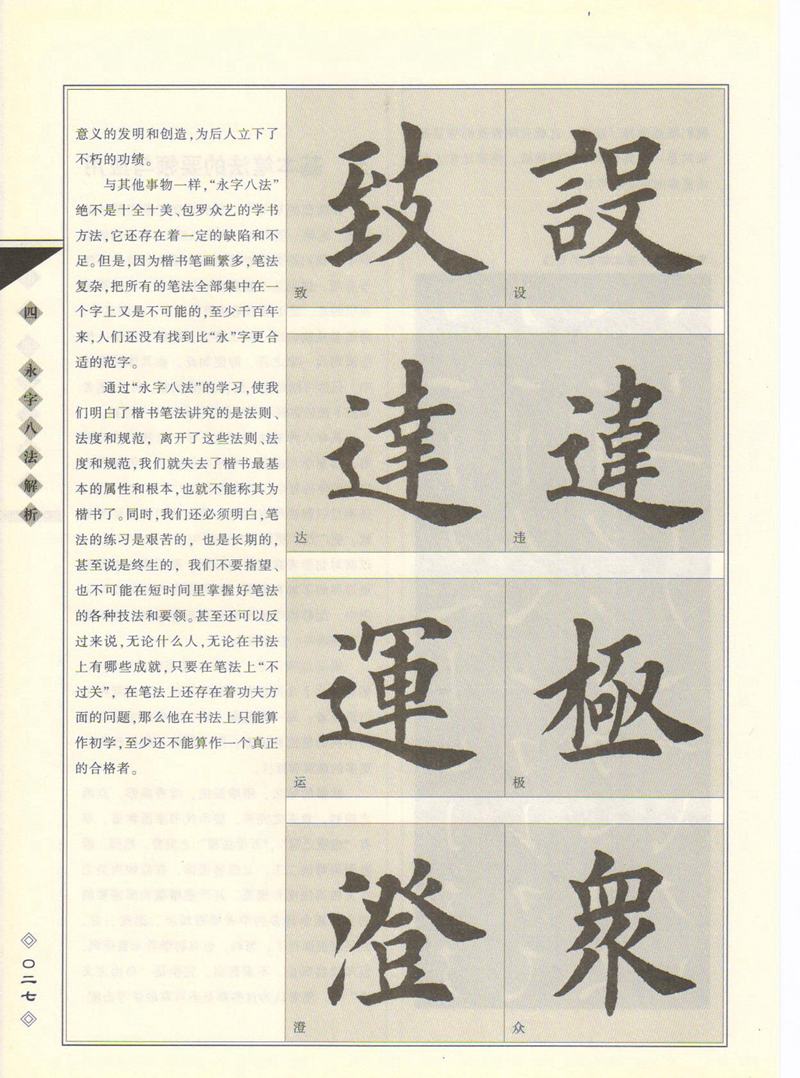 意义的发明和创造，为后人立下了
不朽的功绩。
与其他事物一样，“永字八法”
绝不是十全十美、包罗众艺的学书
方法，它还存在着一定的缺陷和不
足。但是，因为楷书笔画繁多，笔法
复杂，把所有的笔法全部集中在一
个字上又是不可能的，至少千百年
来，人们还没有找到比“永”字更合
适的范字。
通过“永字八法”的学习，使我
们明白了楷书笔法讲究的是法则、
法度和规范，离开了这些法则、法
度和规范，我们就失去了楷书最基
本的属性和根本，也就不能称其为
楷书了。同时，我们还必须明白，笔
法的练习是艰苦的，也是长期的，
甚至说是终生的，我们不要指望、
也不可能在短时间里掌握好笔法
的各种技法和要领。甚至还可以反
过来说，无论什么人，无论在书法
上有哪些成就，只要在笔法上“不
过关”，在笔法上还存在着功夫方
面的问题，那么他在书法上只能算
作初学，至少还不能算作一个真正
的合格者。
致
致
設
设
達
达
違
违
運
运
極
极
澄
澄
衆
众
四 永字八法解析
〇二七